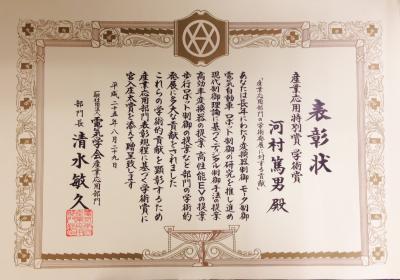 表彰状
産業応用特別賞 学術賞
河村篤男 殿
「産業応用部門の学術発展に対する貢献」
あなたは長年にわたり変換器制御 モータ制御
電気自動車 ロボット制御の研究を推し進め
現代制御理論に基づくディジタル制御手法の提案
高効率変換器の提案 高性能EVの提案
歩行ロボット制御の提案など部門の学術的
発展に多大な貢献をされました
これらの学術的貢献を顕彰するため
産業応用部門表彰規程に基づく学術賞に
宮入庄太賞を添えて贈呈致します
平成二十五年八月二十九日
一般社団法人 電気学会 産業応用部門
部門長 清水敏久